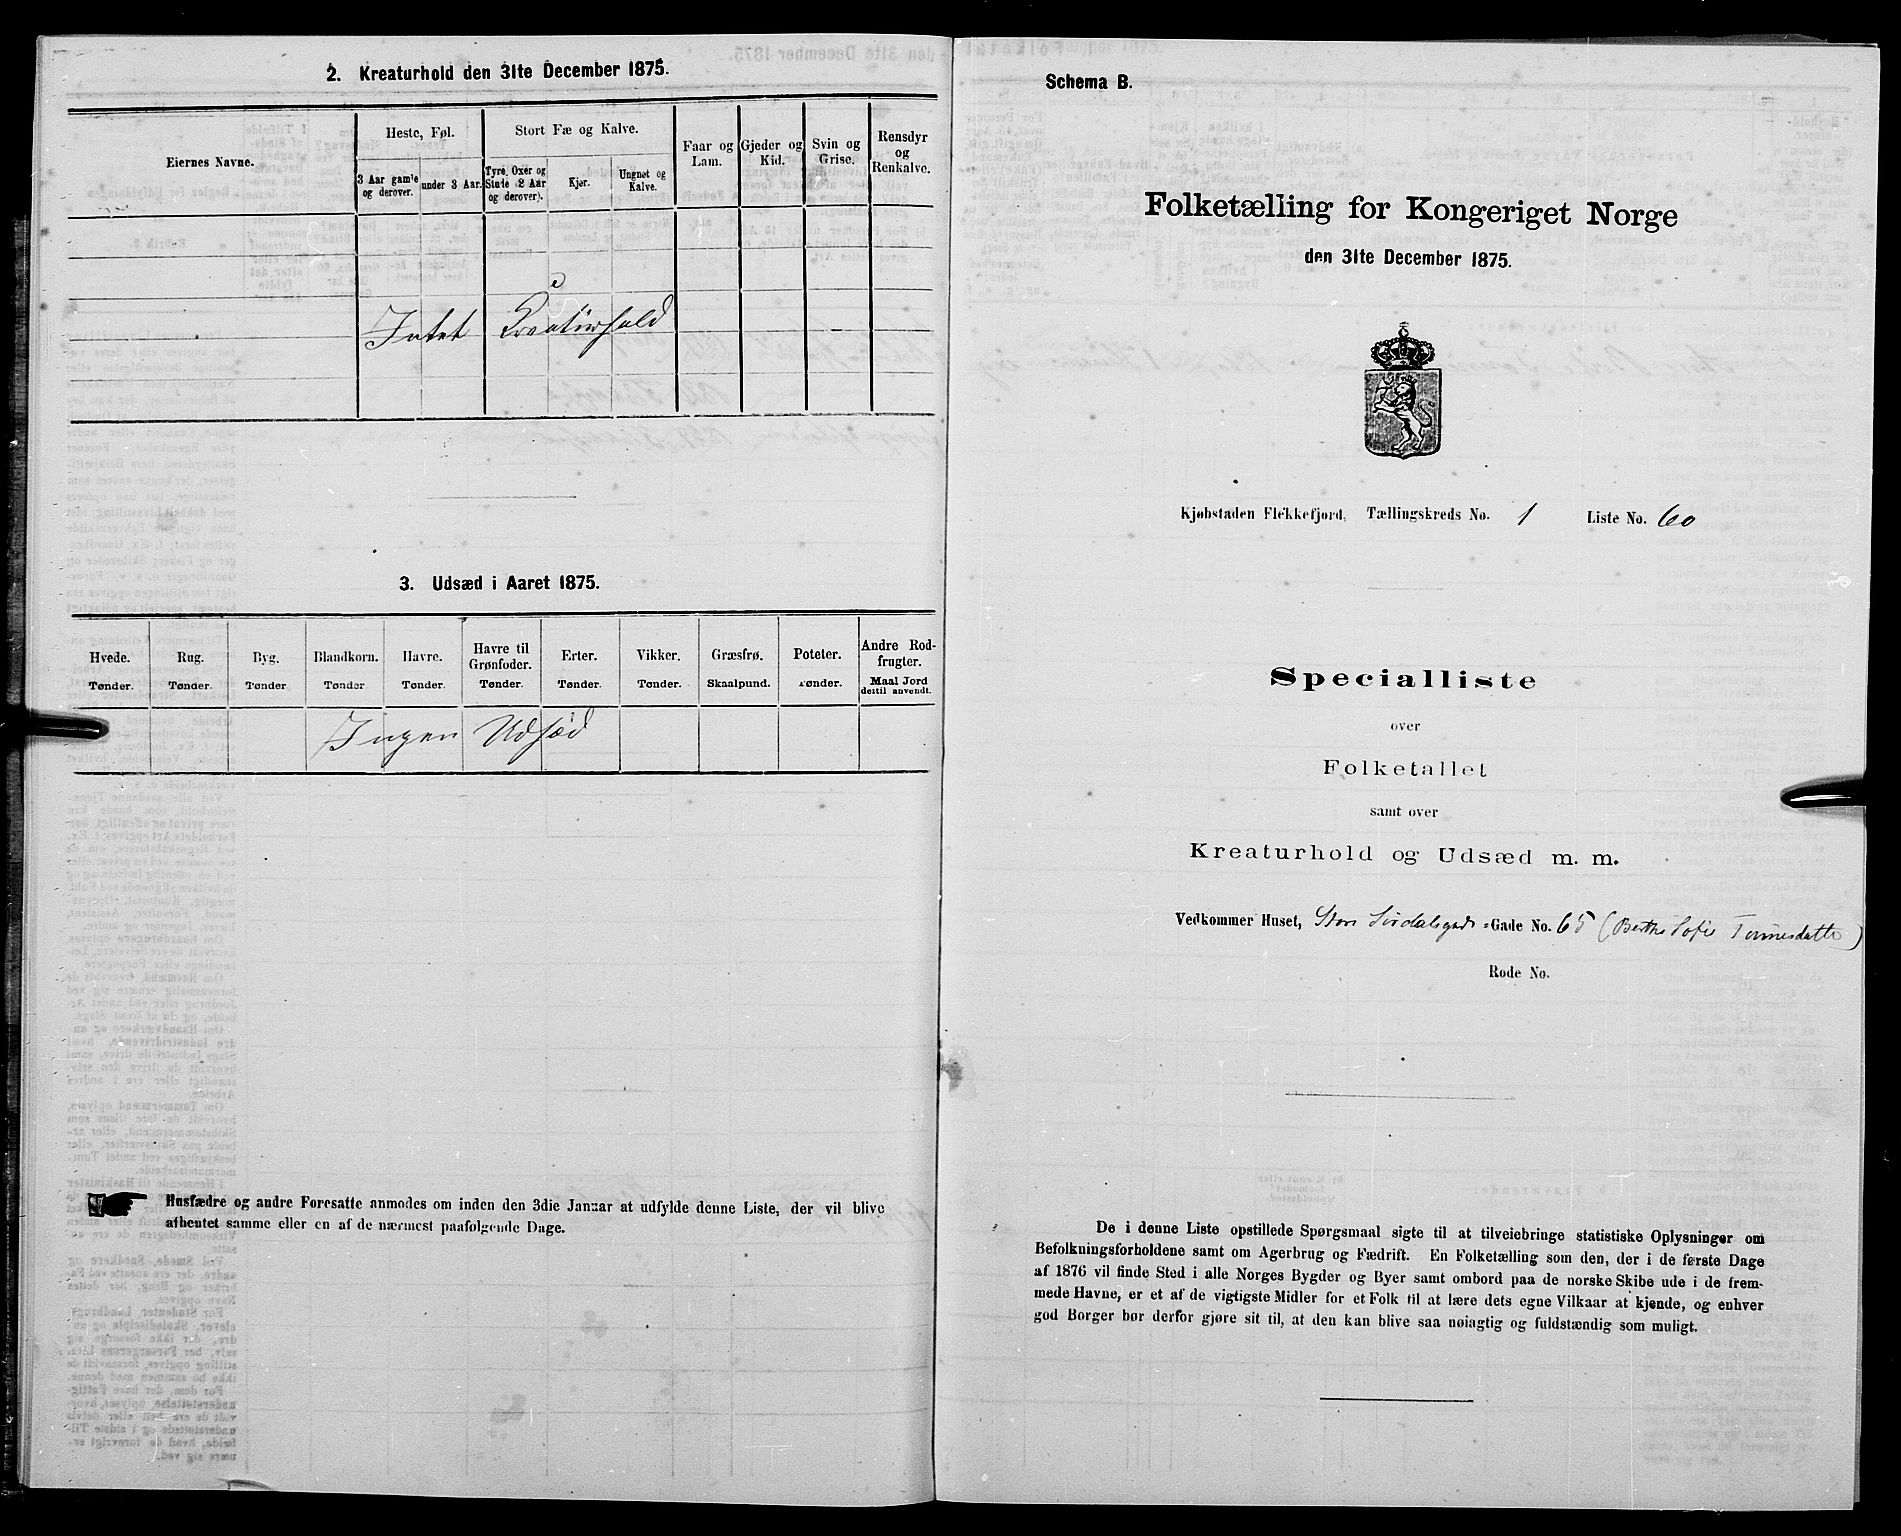 2. Kreaturhold den 31te December 1875.
Eiernes Navne.
Heste, Føl.
Stort Fæ og Kalve.
Faar og Lam.
Gjeder og Kid.
Svin og Grise.
Rensdyr og Renkalve.
3 Aar gamle og derover.
under 3 Aar.
Tyre, Oxer og Stude (2 Aar og derover).
Kjør.
Ungnøt og Kalve.
Intet Kreaturhold
3. Udsæd i Aaret 1875.
Hvede. Rug. Byg. Blandkorn. Havre. Havre til Grønfoder. Erter. Vikker. Græsfrø. Poteter. Andre Rodfrugter.
Tønder. Tønder. Tønder Tønder Tønder. Tønder. Tønder. Tønder. Skaalpund. Tønder. Maal Jord destil anvendt.
Ingen Udsæd
Husfædre og andre Foresatte anmodes om inden den 3die Januar at udfylde denne Liste, der vil blive
afhentet samme eller en af de nærmest paafølgende Dage.
Schema B.
Folketælling for Kongeriget Norge
den 31te December 1875.
Kjøbstaden Flekkefjord, Tællingskreds No. 1 Liste No. 60
Specialliste
over
Folketallet
samt over
Kreaturhold og Udsæd m. m.
Vedkommer Huset, Store Sirdalsgade-Gade No. 65 (Berthe Sofie Tønnesdatter)
Rode No.
De i denne Liste opstillede Spørgsmaal sigte til at tilveiebringe statistiske Oplysninger om
Befolkningsforholdene samt om Agerbrug og Fædrift. En Folketælling som den, der i de første Dage
af 1876 vil finde Sted i alle Norges Bygder og Byer samt ombord paa de norske Skibe ude i de frem-
mede Havne, er et af de vigtigste Midler for et Folk til at lære dets egne Vilkaar at kjende, og enhver
god Borger bør derfor gjøre sit til, at den kan blive saa nøiagtig og fuldstændig som muligt.